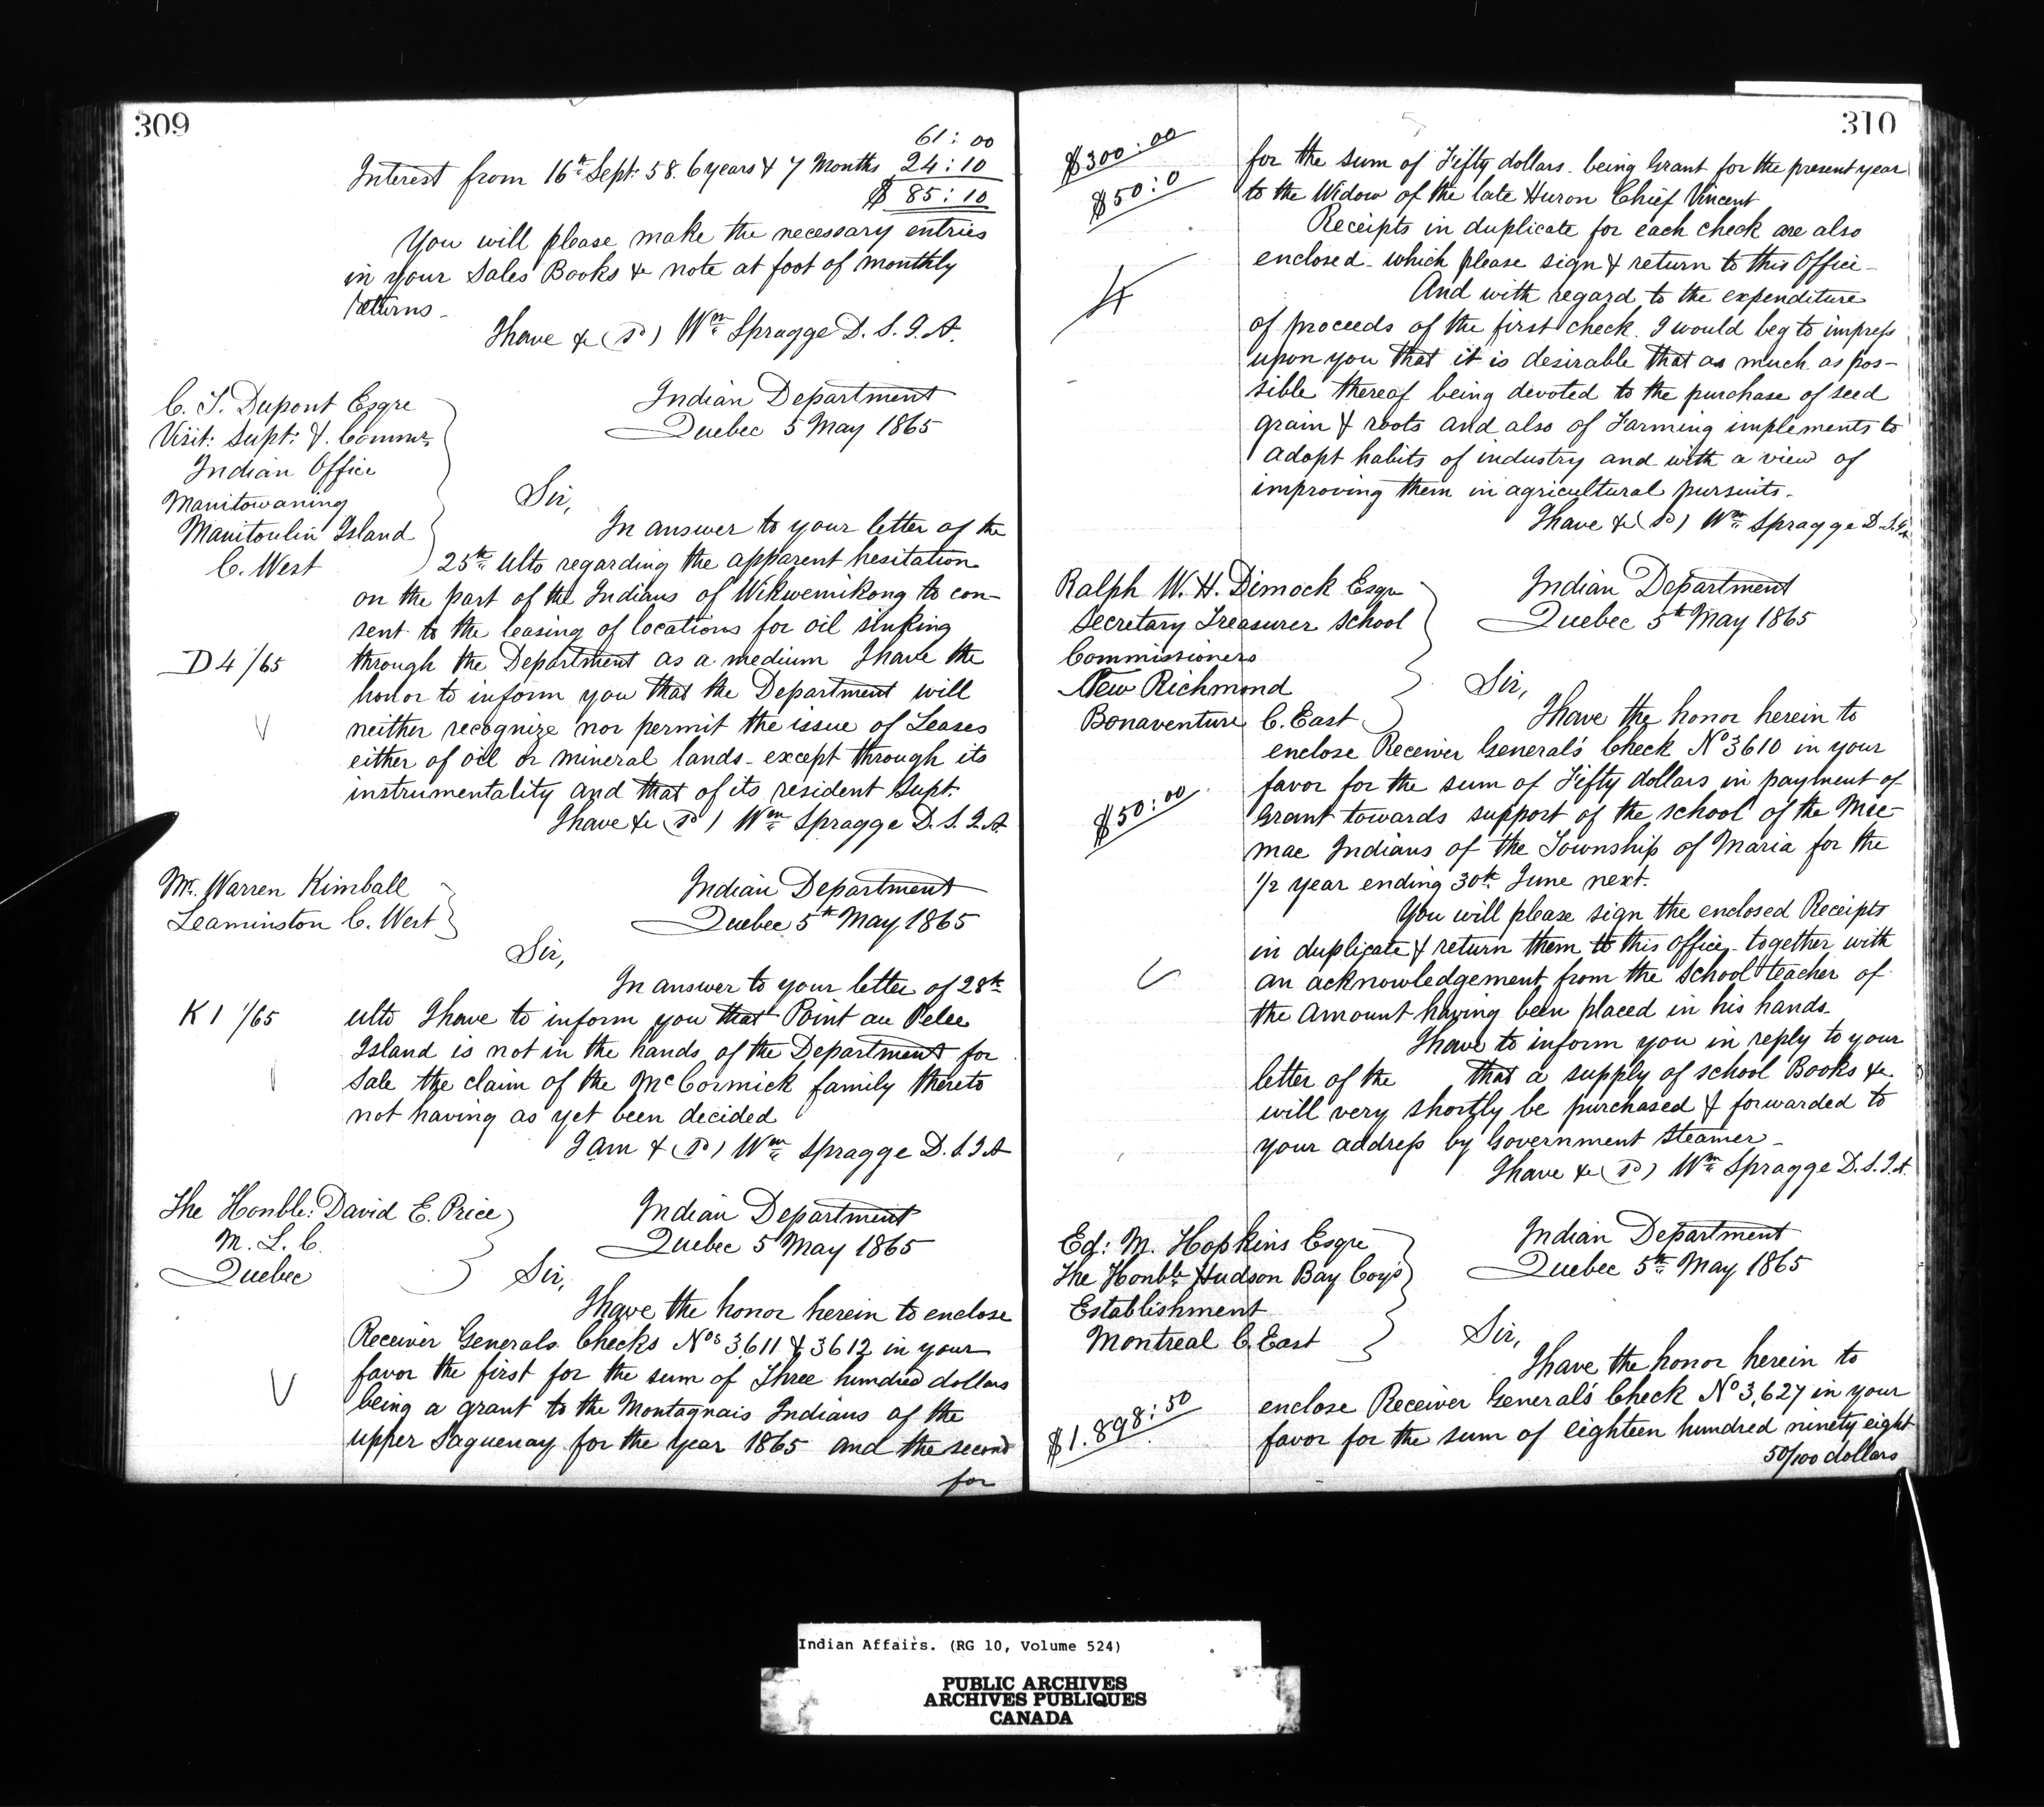 309
61: 00
Interest from 16th Sept: 58. 6 years & 7 Months 24: 10
$ 85: 10
You will please make the necessary entries
in your Sales Books & note at foot of monthly
returns_
I have &c (sd) Wm Spragge D. S. I. A.
C. T. Dupont Esqre
Visit: Supt: & Commr:
Indian Office
Manitowaning
Manitoulin Island
C. West
Indian Department
Quebec 5 May 1865
Sir,
In answer to your letter of the
25th Ulto regarding the apparent hesitation
on the part of the Indians of Wikwemikong to con-
sent to the leasing of locations for oil sinking
D 4 /65 through the Department as a medium I have the
honor to inform you that the Department will
neither recognize nor permit the issue of Leases
either of oil or mineral lands_ except through its
instrumentality and that of its resident Supt.
I have &c (sd) Wm Spragge D. S. I. A
Mr. Warren Kimball
Leaminston C. West
Indian Department
Quebec 5th May 1865
Sir,
In answer to your letter of 28th
K 1 /65 ulto I have to inform you that Point au Pelee
Island is not in the hands of the Department for
sale the claim of the McCormick family thereto
not having as yet been decided
I am & (sd) Wm Spragge D. S. I. A
The Honble: David E. Price
M. L. C.
Quebec
Indian Department
Quebec 5 May 1865
Sir,
I have the honor herein to enclose
Receiver Generals Checks Nos 3,611 & 3612 in your
favor the first for the sum of Three hundred dollars
being a grant to the Montagnais Indians of the
upper Saguenay for the year 1865 and the second
for
310
$300: 00 for the sum of Fifty dollars_ being Grant for the present year
$50: 0 to the Widow of the late Huron Chief Vincent
Receipts in duplicate for each check are also
enclosed_ which please sign & return to this Office_
And with regard to the expenditure
of proceeds of the first check. I would beg to impress
upon you that it is desirable that as much as pos-
sible thereof being devoted to the purchase of seed
grain & roots and also of Farming implements to
adopt habits of industry and with a view of
improving them in agricultural pursuits_
I have &c (sd) Wm Spragge D. S. I. A
Ralph W. H. Dimock Esqre
Secretary Treasurer School
Commissioners
New Richmond
Bonaventure C. East
Indian Department
Quebec 5th May 1865
Sir,
I have the honor herein to
enclose Receiver General's Check No 3610 in your
favor for the sum of Fifty dollars in payment of
$50: 00 Grant towards support of the school of the Mic-
mac Indians of the Township of Maria for the
1/2 year ending 30th June next.
You will please sign the enclosed Receipts
in duplicate & return them to this office_ together with
an acknowledgement from the School teacher of
the amount having been placed in his hands_
I have to inform you in reply to your
letter of the that a supply of school Books &c.
will very shortly be purchased & forwarded to
your address by Government Steamer_
I have &c (sd) Wm Spragge D. S. I. A.
Ed: M. Hopkins Esqre
The Honble Hudson Bay Coy's
Establishment
Montreal C. East
Indian Department
Quebec 5th May 1865
Sir,
I have the honor herein to
enclose Receiver General's Check No 3,627 in your
$1.898: 50 favor for the sum of eighteen hundred ninety eight
50/100 dollars
Indian Affairs. (RG 10, Volume 524)
PUBLIC ARCHIVES
ARCHIVES PUBLIQUES
CANADA